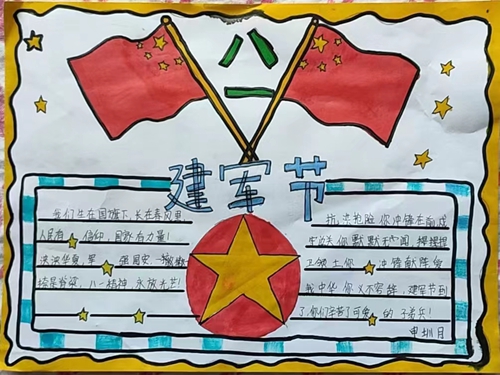 八
一
建军节
我们生在国旗下,长在春风里,
人民有信仰,国家有力量!
泱泱华夏,军强国安
脊梁,八一精神,永放光芒!
抗洪抢险你冲锋在前线
牢边关你默默无闻
卫领土你冲锋献阵
我中华你义不容辞,建军节到
了,你们辛苦了可爱的子弟兵!
申圳月